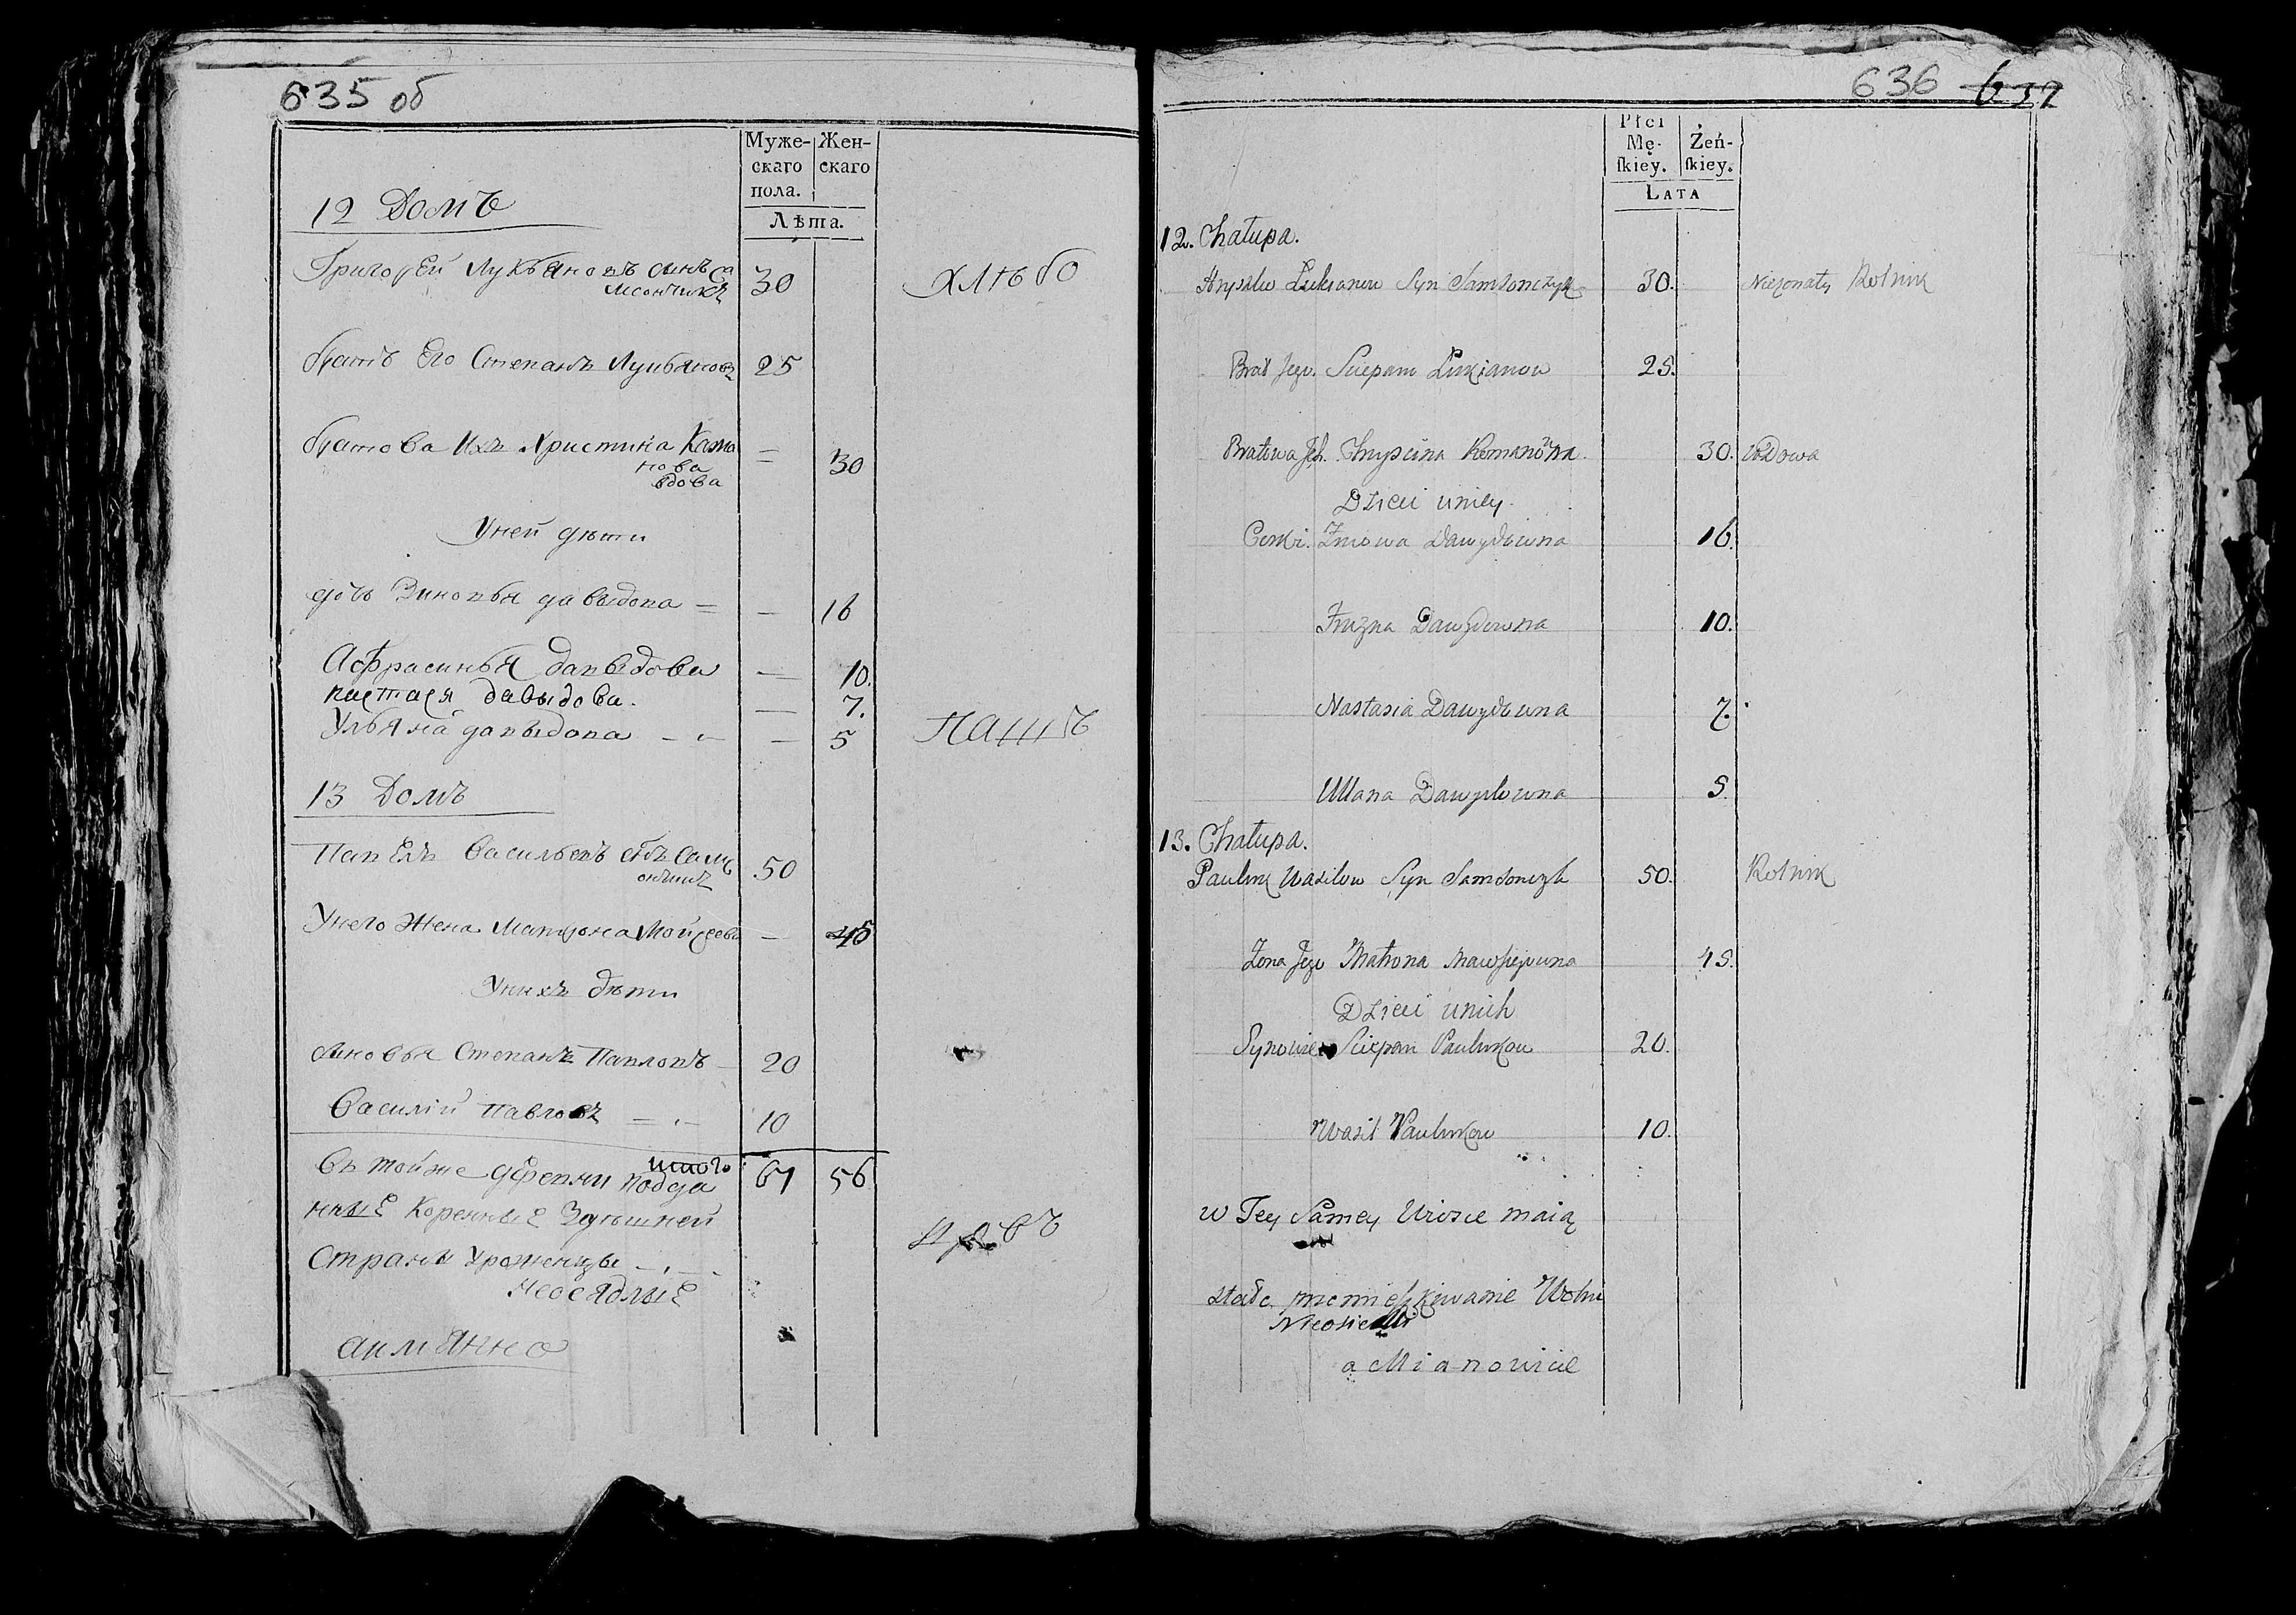 635 об
Муже- Жен-
скаго скаго
пола.
Лѣта.
12 Домъ
Григорей Лукьяновъ сынъ Са
мсончикъ 30
Хлѣбо
братъ Его Степанъ Лукьяновъ 25
братова Ихъ Христина
нова
вдова 30
Уней дети
дочь Зиновья давыдова 16
Афрасинья давыдова 10.
настася давыдова. 7.
Ульяна давыдова 5
Пашъ
13 Домъ
Павелъ Васильевъ сынъ Самс
ончикъ 50
Унего Жена Матрона Мойсеева 45
Унихъ дети
сыновья Степанъ Павловъ 20
Василий Павловъ 10
итого
Въ тойже деревни подда 61 56
нные Коренные Здешней
Страны Уроженцы
Неоседлые
аимянно
636 637
Płci
Mę- Żeń-
ſkiey. ſkiey.
LATA
12. Chałupa.
Hryszko Łukianow Syn Samsonczyk 30. Nieżonaty Rolnik
Brat Jego Sciepan Łukianow 25.
Bratowa Ich Chryscina Romanowna 30. Wdowa
Dzieci uniey
Corki Zinowa Dawydowna 16.
Fruzna Dawydowna 10.
Nastasia Dawydowna 7.
Ullana Dawydowna 5.
13. Chałupa.
Pauluk Wasilow Syn Samsonczyk 50. Rolnik
Zona Jego Matrona 45.
Dzieci unich
Synowie Sciepan Paulukow 20.
Wasil Paulukow 10.
w Tey Samey Wiosce maią
stałe Wolni
Nieosiedli
a Mianowicie